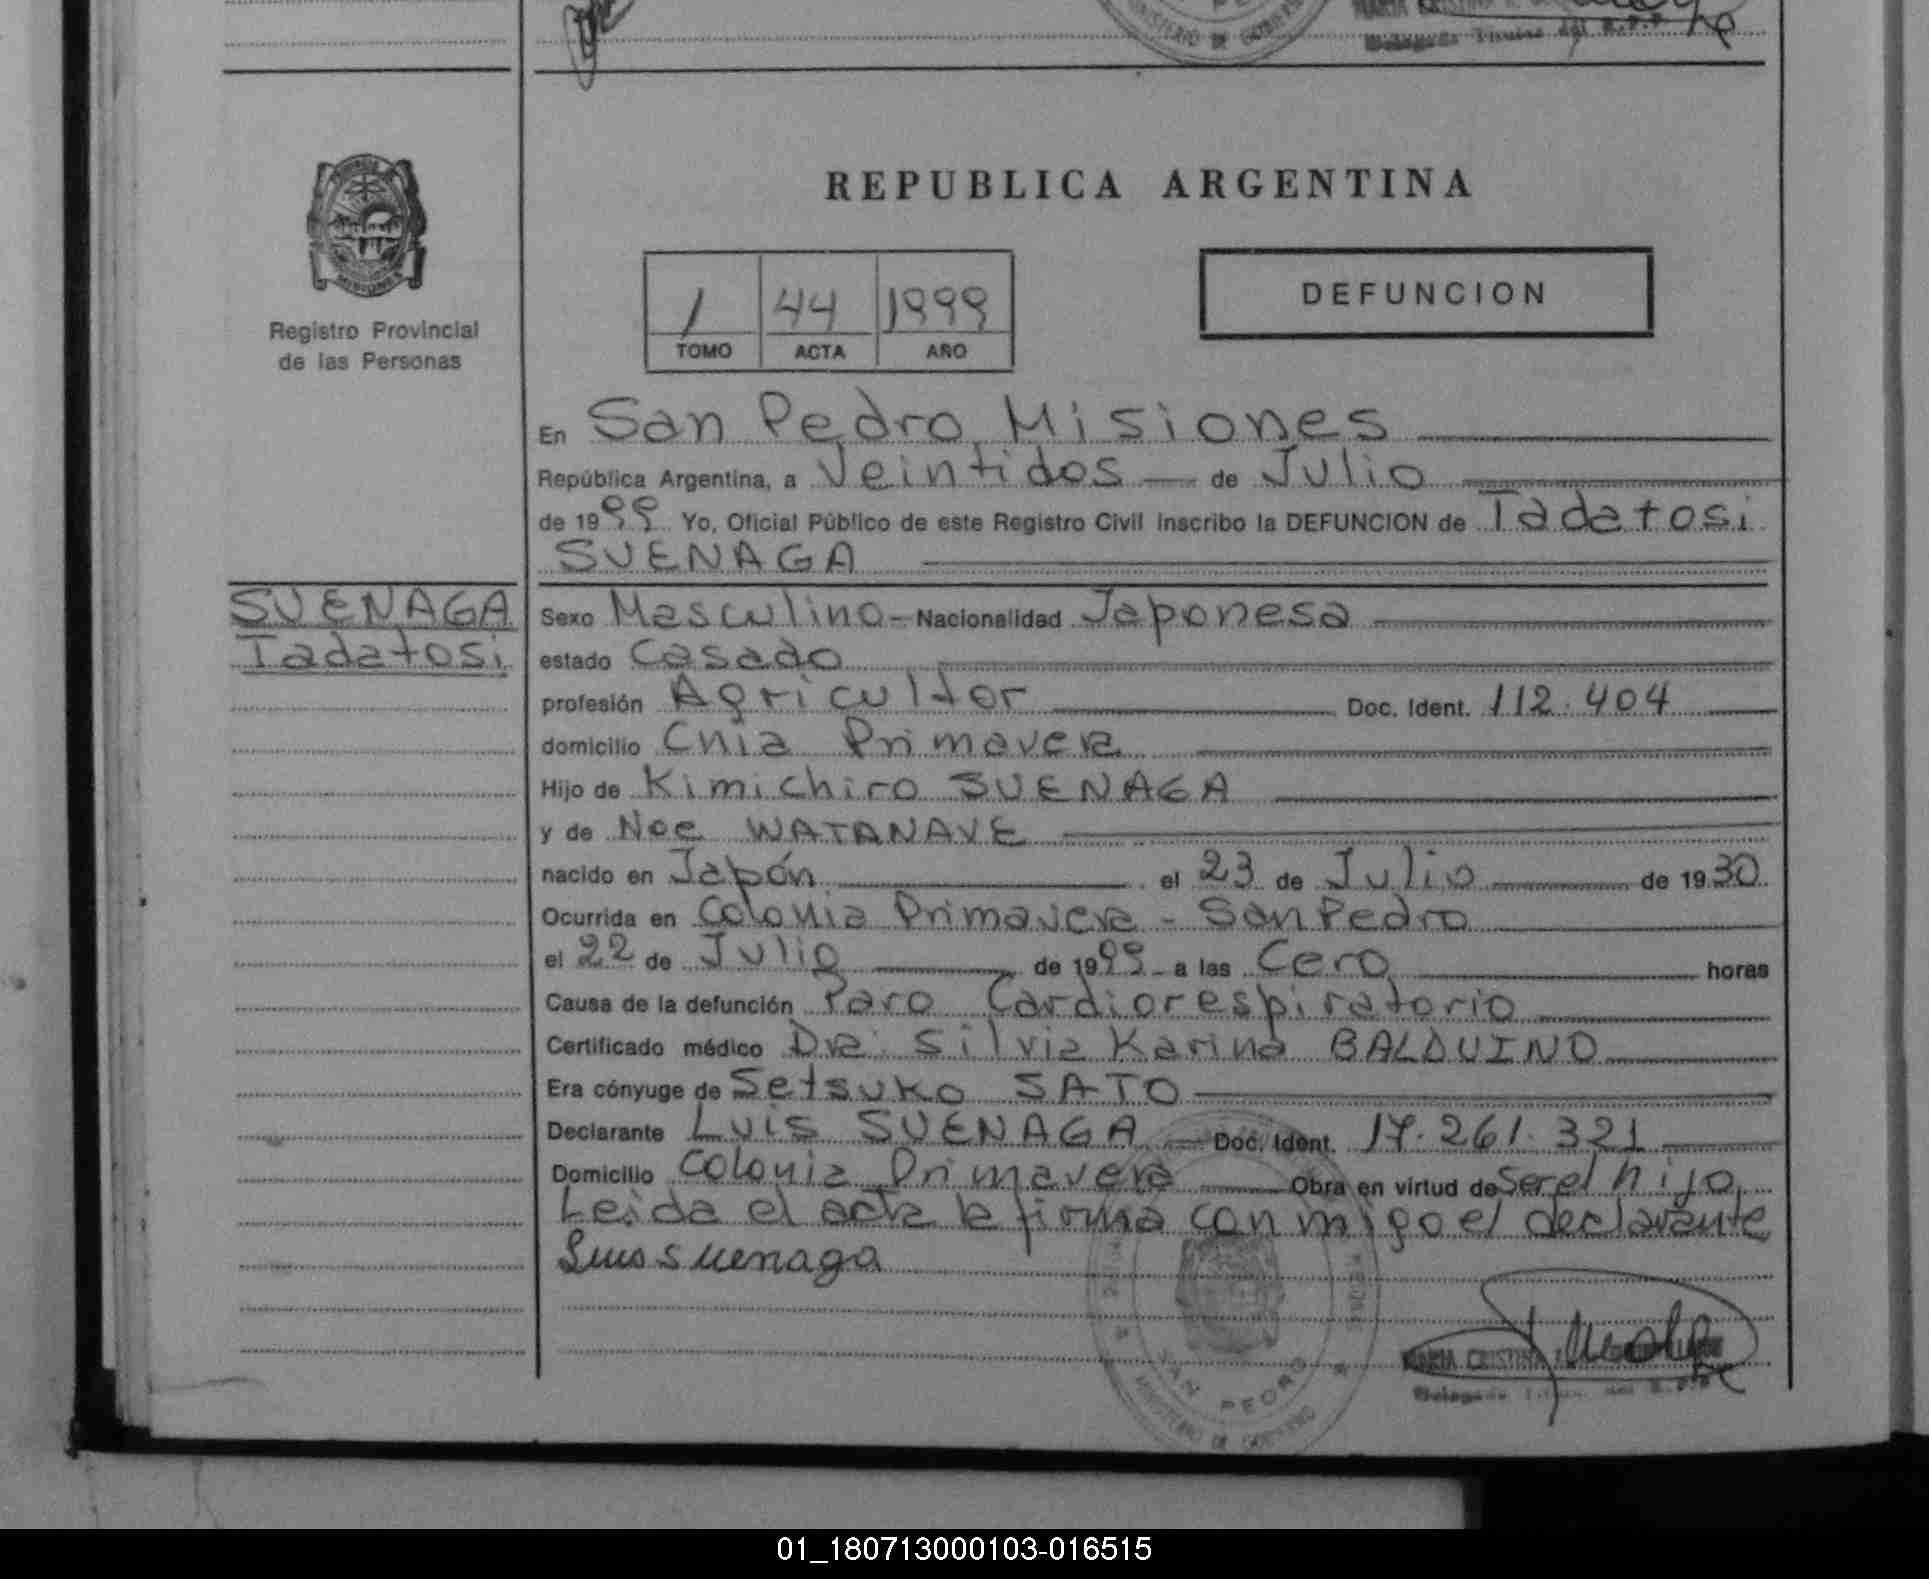 MINISTERIO DE GOBIERNO
MARIA CRISTINA
Delegada Titular del R.P.P.
PROVINCIA
MISIONES
Registro Provincial
de las Personas
REPUBLICA ARGENTINA
1 44 1999
TOMO ACTA AÑO
DEFUNCION
En San Pedro, Misiones
República Argentina, a Veintidos de Julio
de 1999 Yo, Oficial Público de este Registro Civil inscribo la DEFUNCION de Tadatosi
SUENAGA
SUENAGA
Tadatosi
Sexo Masculino - Nacionalidad Japonesa
estado Casado
profesión Agricultor Doc. Ident. 112.404
domicilio Cnia Primavera
Hijo de Kimichiro SUENAGA
y de Noe WATANAVE
nacido en Japón el 23 de Julio de 1930
Ocurrida en Colonia Primavera - San Pedro
el 22 de Julio de 1999 a las Cero horas
Causa de la defunción Paro Cardiorespiratorio
Certificado médico Dra. Silvia Karina BALDUINO
Era cónyuge de Setsuko SATO
Declarante Luis SUENAGA Doc. Ident. 17.261.321
Domicilio Colonia Primavera Obra en virtud de ser el hijo,
Leida el acta la firma conmigo el declarante
Luis Suenaga
SAN PEDRO
MINISTERIO DE GOBIERNO
MARIA CRISTINA
Delegada Titular del R.P.P.
01_180713000103-016515